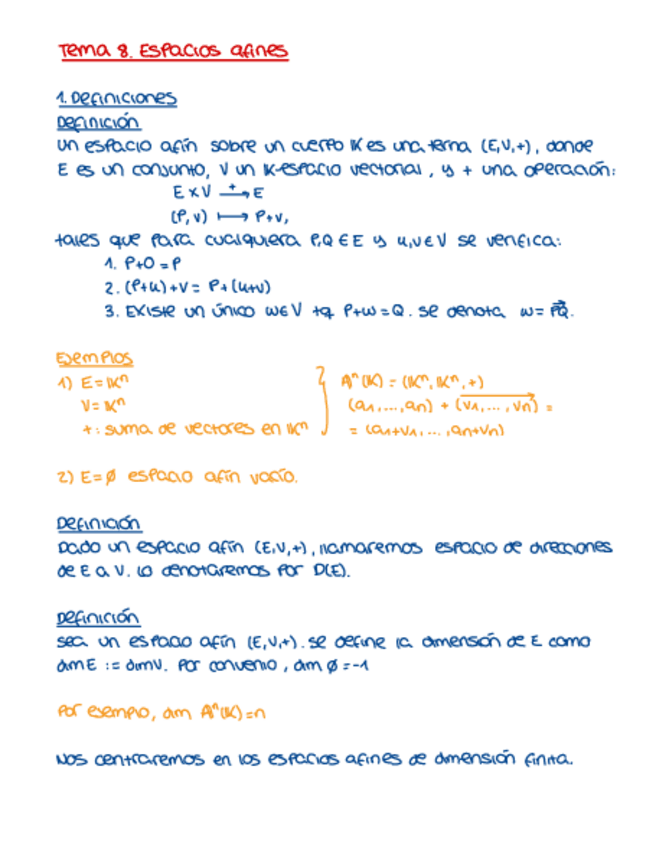 Tema 8. Espacios afines
1. Definiciones
Definición
Un espacio afín sobre un cuerpo K es una terna (E,V,+), donde
E es un conjunto, V un K-espacio vectorial, y + una operación:
E x V —+→ E
(P, v) ⟼ P+v,
tales que para cualquiera P,Q ∈ E y u,v ∈ V se verifica:
1. P+0 = P
2. (P+u)+v = P+(u+v)
3. Existe un único w∈V tq P+w=Q. Se denota w= \overrightarrow{PQ}.
Ejemplos
1) E=Kⁿ
V=Kⁿ
+: suma de vectores en Kⁿ
Aⁿ(K) = (Kⁿ, Kⁿ, +)
(a₁,...,aₙ) + \overrightarrow{(v₁,...,vₙ)} =
= (a₁+v₁,...,aₙ+vₙ)
2) E=∅ espacio afín vacío.
Definición
Dado un espacio afín (E,V,+), llamaremos espacio de direcciones
de E a V. Lo denotaremos por D(E).
Definición
Sea un espacio afín (E,V,+). Se define la dimensión de E como
dimE := dimV. Por convenio, dim ∅=-1
Por ejemplo, dim Aⁿ(K)=n
Nos centraremos en los espacios afines de dimensión finita.